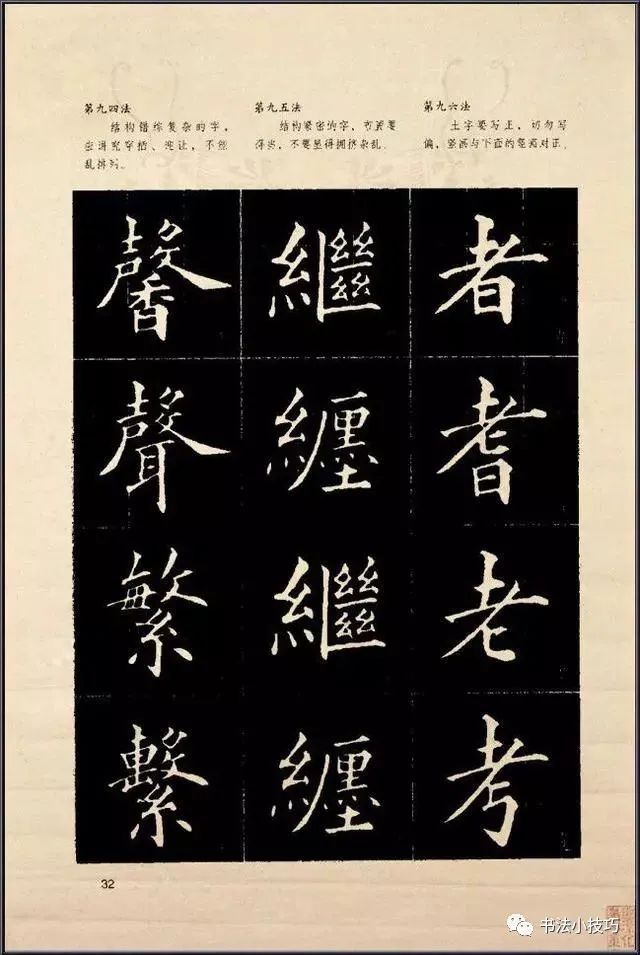 第九四法
结构错综复杂的字,
应讲究穿插、迎让,不能
乱排列。
第九五法
结构紧密的字,布置要
得当,不要显得拥挤杂乱.
第九六法
土字要写正,切勿写
偏,竖画与下面的竖画对正.
馨
聲
繁
繫
繼
纏
繼
纏
者
耆
老
考
32
书法小技巧